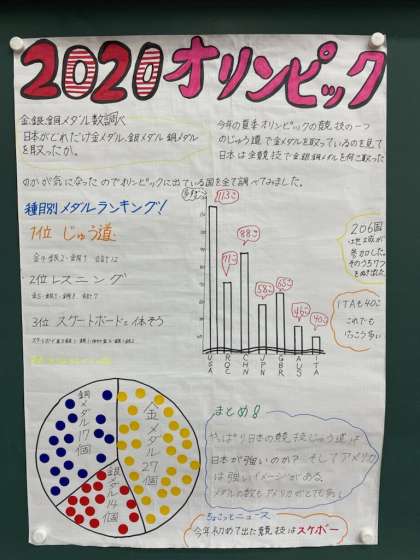 2020オリンピック
金、銀、銅メダル数調べ
日本がどれだけ金メダル、銀メダル、銅メダル
を取ったか。
今年の夏季オリンピックの競技の一つ
のじゅう道で金メダルを取っているのを見て
日本は全競技で金銀銅メダルを何こ取った
のかが気になったのでオリンピックに出ている国を全て調べてみました。
種目別メダルランキング!
1位 じゅう道
2位 レスリング
3位 スケートボードと体そう
113こ
71こ
88こ
58こ
65こ
46こ
40こ
USA
ROC
CHN
JPN
GBR
AUS
ITA
206国
参加した。
ITAも40こ
これでも
けっこう多い
銅メダル17個
金メダル27個
銀メダル14個
まとめ
やっぱり日本の競技じゅう道は
日本が強いのか?そしてアメリカ
は強いイメージがある。
メダルの数もアメリカがとても多い
ちょこっとニュース
今年初めて出た競技はスケボー